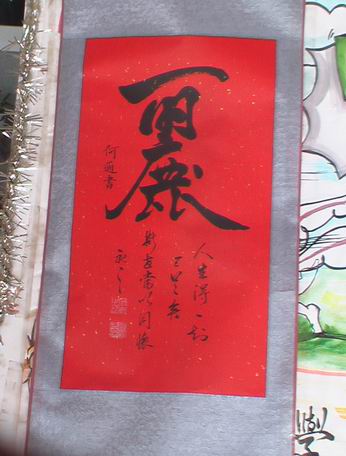 麗
人生得一知
己足矣
斯世當以同懷
視之
何 書
學